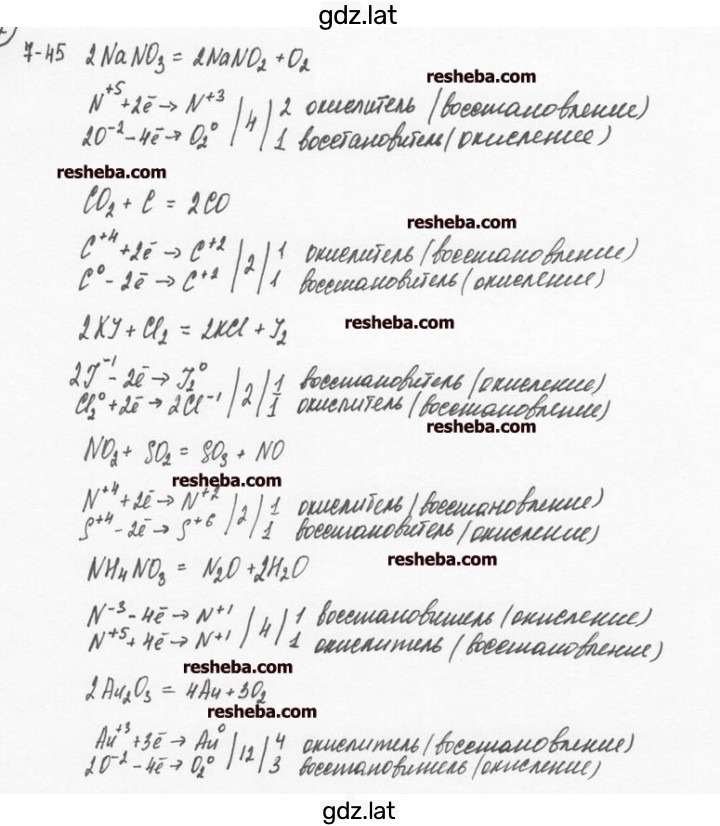 gdz.lat
7-45 2NaNO₃ = 2NaNO₂ + O₂
resheba.com
N⁺⁵ + 2ē → N⁺³ | 4 | 2 окислитель (восстановление)
2O⁻² - 4ē → O₂⁰ | 4 | 1 восстановитель (окисление)
resheba.com
CO₂ + C = 2CO
resheba.com
C⁺⁴ + 2ē → C⁺² | 2 | 1 окислитель (восстановление)
C⁰ - 2ē → C⁺² | 2 | 1 восстановитель (окисление)
2KJ + Cl₂ = 2KCl + J₂ resheba.com
2J⁻¹ - 2ē → J₂⁰ | 2 | 1 восстановитель (окисление)
Cl₂⁰ + 2ē → 2Cl⁻¹ | 2 | 1 окислитель (восстановление)
resheba.com
NO₂ + SO₂ = SO₃ + NO
resheba.com
N⁺⁴ + 2ē → N⁺² | 2 | 1 окислитель (восстановление)
S⁺⁴ - 2ē → S⁺⁶ | 2 | 1 восстановитель (окисление)
NH₄NO₃ = N₂O + 2H₂O resheba.com
N⁻³ - 4ē → N⁺¹ | 4 | 1 восстановитель (окисление)
N⁺⁵ + 4ē → N⁺¹ | 4 | 1 окислитель (восстановление)
resheba.com
2Au₂O₃ = 4Au + 3O₂
resheba.com
Au⁺³ + 3ē → Au⁰ | 12 | 4 окислитель (восстановление)
2O⁻² - 4ē → O₂⁰ | 12 | 3 восстановитель (окисление)
gdz.lat